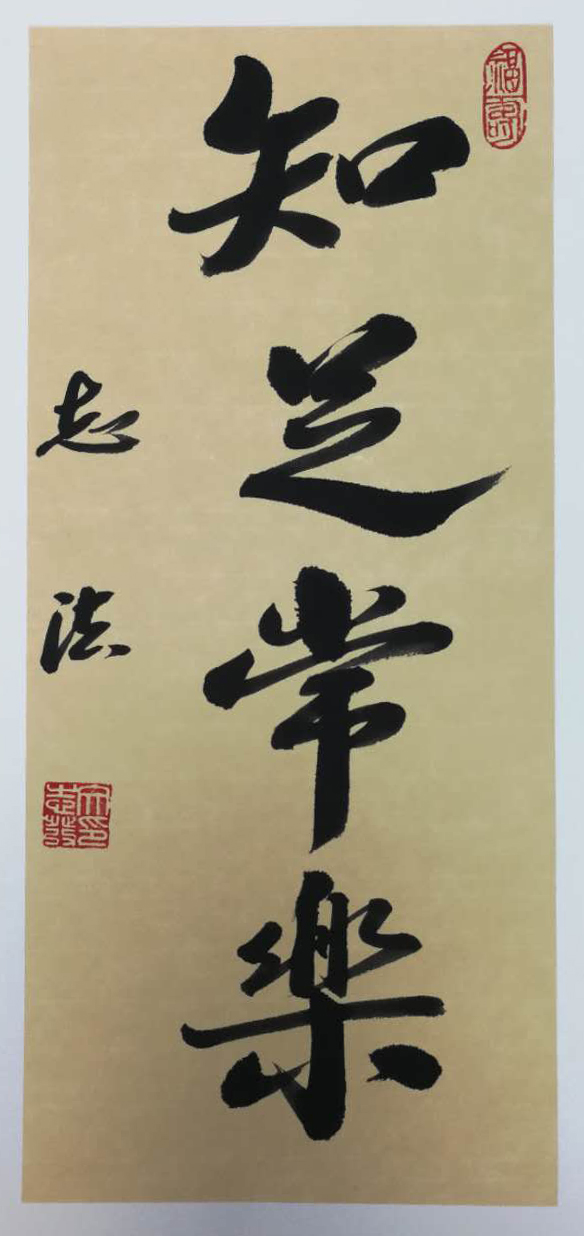 知足常樂
志法